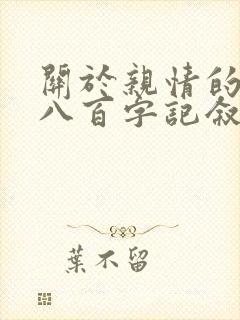 關於親情的
八百字記敘
葉不留